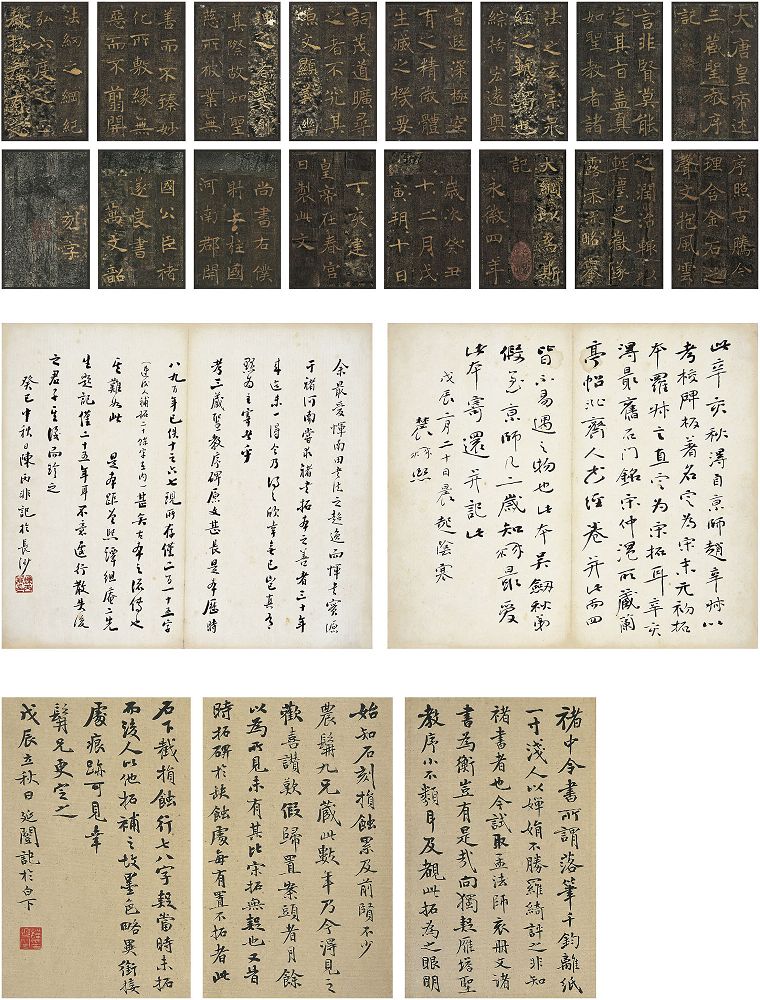 大唐皇帝述
三藏聖教序
記
言非賢莫能
定其旨蓋真
如聖教者諸
法之玄宗衆
經之軌躅也
綜括宏遠奧
旨遐深極空
有之精微體
生滅之機要
詞茂道曠尋
之者不究其
源文顯義幽
之者莫測
其際故知聖
慈所被業無
善而不臻妙
化所敷緣無
惡而不翦開
法網之綱紀
弘六度之正
教拯群有之
序照古騰今
理含金石之
聲文抱風雲
之潤治輒以
輕塵足嶽墜
露添流略舉
大綱以爲斯
記
永徽四年
歲次癸丑
十二月戊
寅朔十日
丁亥建
皇帝在春宮
日製此文
尚書右僕
射上柱國
河南郡開
國公臣褚
遂良書
萬文韶
刻字
此辛亥秋淂自京師趙辛叔以
考校碑板著名定為宋末元初拓
本羅叔言直定為宋拓耳辛亥
淂最舊石門銘宋仲温所藏蘭
亭帖沁齋人老經卷并此而四
皆不易遇之物也此本吴劍秋弟
假至京師凡二歲知余最愛
此本寄還并記此
戊辰二月二十日晨起陰寒
余最爱惲南田書法之超逸而惲書實源
于褚河南嘗求褚書拓本之善者三十年
来迄未一得今乃得之欣幸無已豈真有
黙為主宰者乎
考三藏聖教序碑原文甚長是本歷時
八九百年已佚十之六七現所存僅二百一十五字
甚矣古本之流傳也
其難如此
生題記僅二十五年耳不意遽行散失後
之君子其後而珍之
癸巳中秋日陳丙非記於長沙
褚中令書所謂落筆千鈞離紙
一寸淺人以嬋娟不勝羅綺評之非知
褚書者也今試取孟法師哀册文諸
書為衡豈有是哉向獨疑雁塔聖
教序小不類耳及觀此拓為之眼明
始知石刻損蝕累及前賢不少
農髯九兄藏此數年乃今得見之
歡喜讚歎假歸置案頭者月餘
以為所見未有其比宋拓無疑也又昔
時拓碑於缺蝕處每有置不拓者此
石下截損蝕行七八字疑當時未拓
而後人以他拓補之故墨色略異銜接
處痕跡可見幸
髯兄更定之
戊辰立秋日延闓記於白下